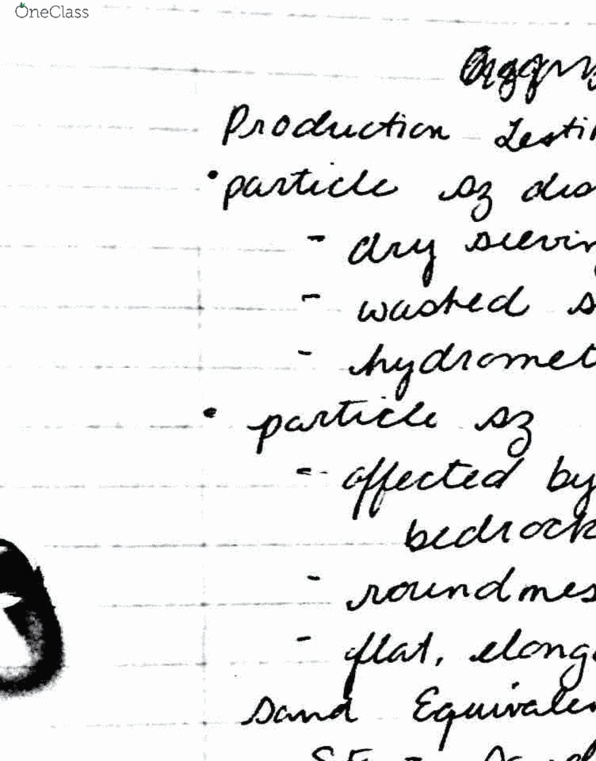 OneClass
Production Testin
• particle sz dis
- dry sievin
- washed s
- hydromet
• particle sz
- affected by
bedrock
- roundness
- flat, elonga
Sand Equivalen